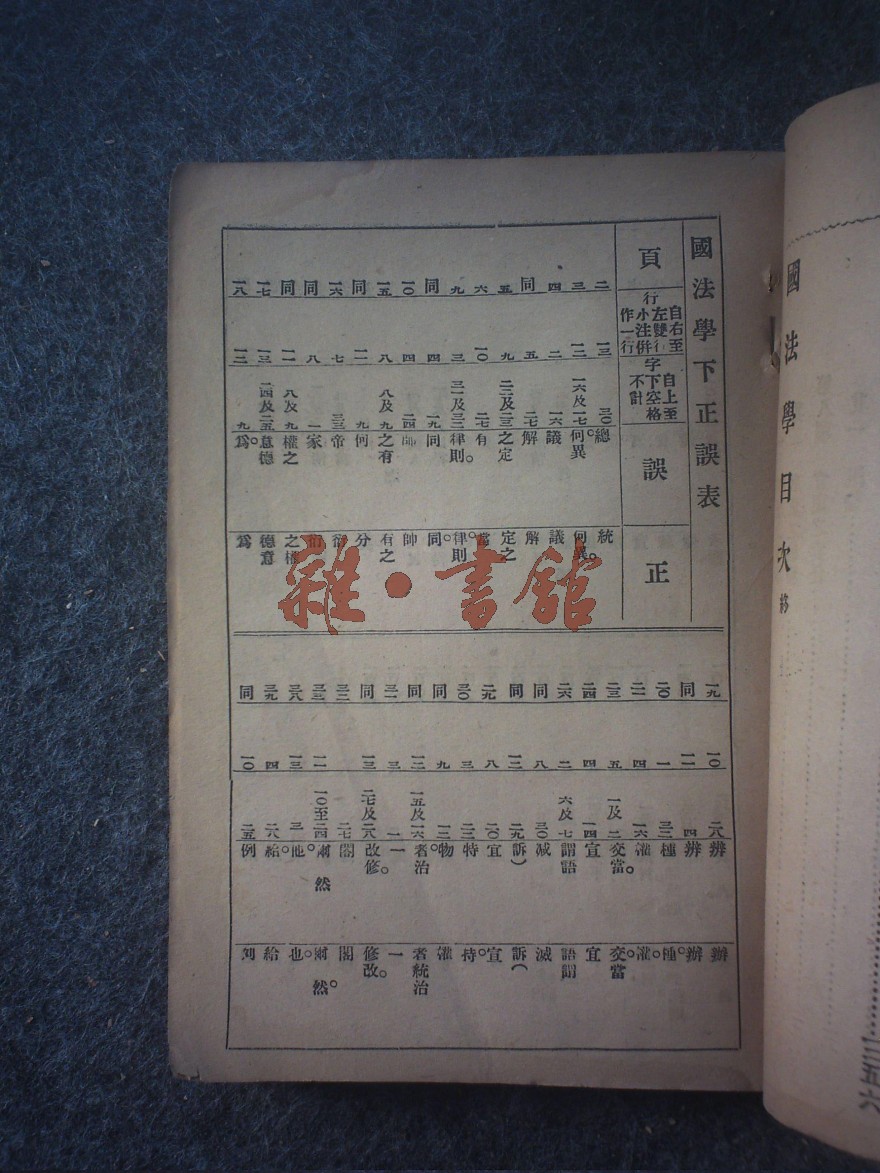 國法學下正誤表
頁
行 自右至左雙行小注併作一行
字 自上至下空格不計
誤
正
二 一三 三〇 總 統
三 一二 一六及一七 何異 何異。
四 二 一六 議 議
同 五 二七 解 解
五 九 二二及二三 之定 定之
六 一〇 二七 有
九 三 三一及三二 律則。 律。則
同 四 一九 同 同。
一〇 四 二四 帥
一五 八 八及九 之有 有之
同 一一 九 何 分
一六 七 三三 帝
同 八 一 家
同 一一 八及九 權之 之權
一七 一三 二四及二五 意德 德意
一八 一二 九 爲。 爲
一九 一〇 二八 辨 辦
同 一一 四 辨 辦
二〇 一 三二 種 種。
二一 四 一六 灌 灌。
二三 五 一及二 交當。 交。當
二四 四 一四 宣 宜
二六 二 六及七 謂語 語謂
同 八 三〇 減 滅
同 一二 二九 訴) 訴(
二九 八 二〇 宜 宣
三〇 三 二二 特 持
同 九 一三 物
同 一二 一五及一六 者治 者統治
三一 三 一 一 一
同 一三 二七及二八 改修。 修改。
三二 二七 閣 閣
三三 一一 一〇至二四 爾然 爾然。
三八 一三 三一 他。 也。
三九 四 二八 給。 給
同 一〇 二五 例 列
國法學目次終
雜·書館